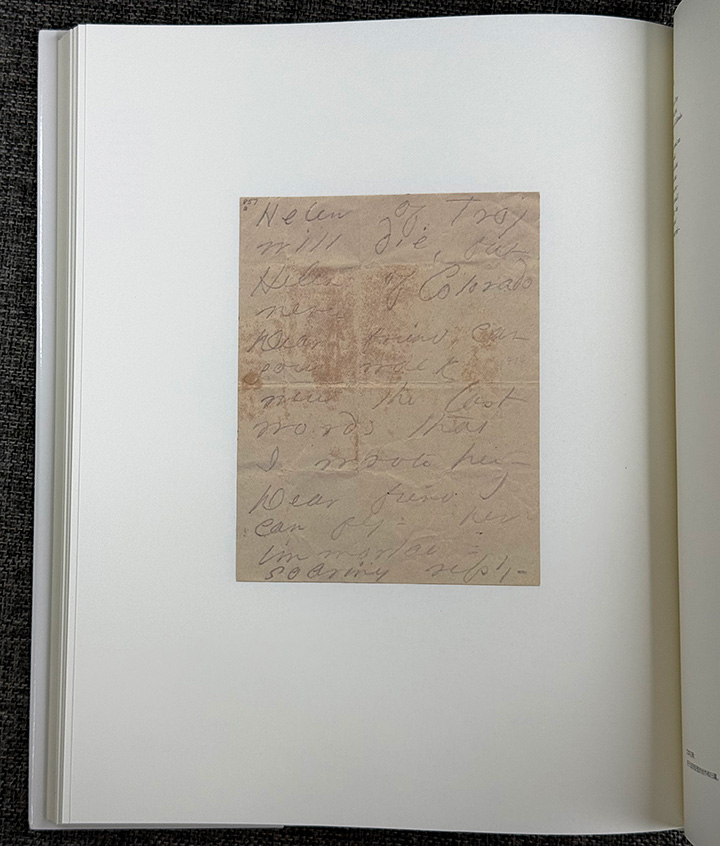 857
Helen of Troy
will die, but
Helen of Colorado
never
Dear friend, can
you walk
were the last
words that
I wrote her -
Dear friend I
can fly - her
immortal =
soaring reply -